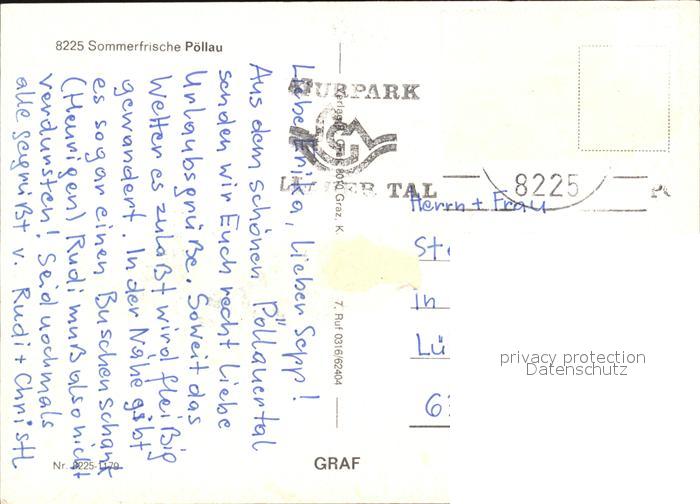 8225 Sommerfrische Pöllau
Liebe Erika, lieber Sepp!
Aus dem schönen Pöllauertal
senden wir Euch recht liebe
Urlaubsgrüße. Soweit das
Wetter es zuläßt wird fleißig
gewandert. In der Nähe gibt
es sogar einen Buschenschank
(Heurigen) Rudi muß also nicht
verdursten! Seid nochmals
alle gegrüßt v. Rudi + Christl
Nr. 8225-1179
GRAF
8010 Graz, K
7, Ruf 0316/62404
TAL
8225
Herrn + Frau
St
in
Lü
6
privacy protection
Datenschutz